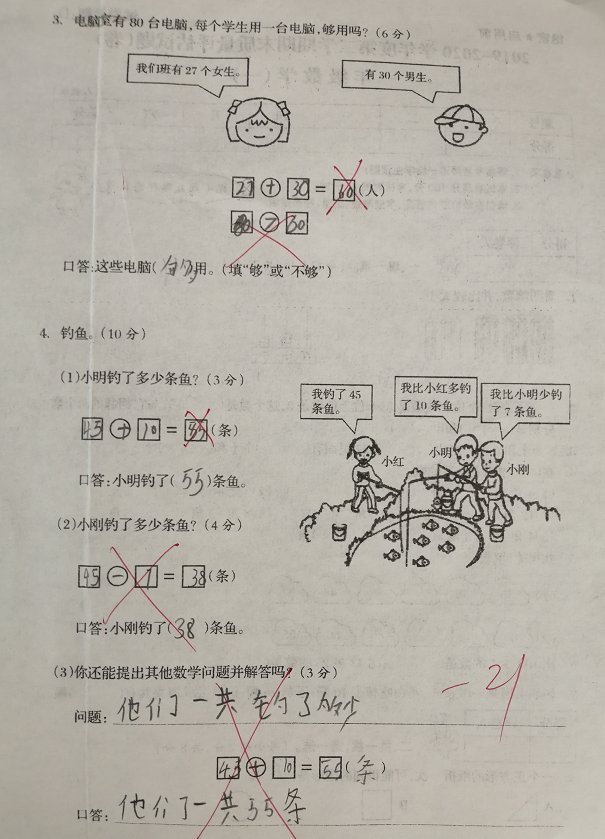 3. 电脑室有80台电脑,每个学生用一台电脑,够用吗?(6分)
我们班有27个女生。
有30个男生。
27+30=60(人)
80>30
口答:这些电脑( 够 )用。(填“够”或“不够”)
4. 钓鱼。(10分)
(1)小明钓了多少条鱼?(3分)
我钓了45条鱼。
我比小红多钓了10条鱼。
我比小明少钓了7条鱼。
小红
小明
小刚
45+10=45(条)
口答:小明钓了( 55 )条鱼。
(2)小刚钓了多少条鱼?(4分)
45-7=38(条)
口答:小刚钓了( 38 )条鱼。
(3)你还能提出其他数学问题并解答吗?(3分)
-21
问题:他们一共钓了
45+10=55(条)
口答:他们了一共55条